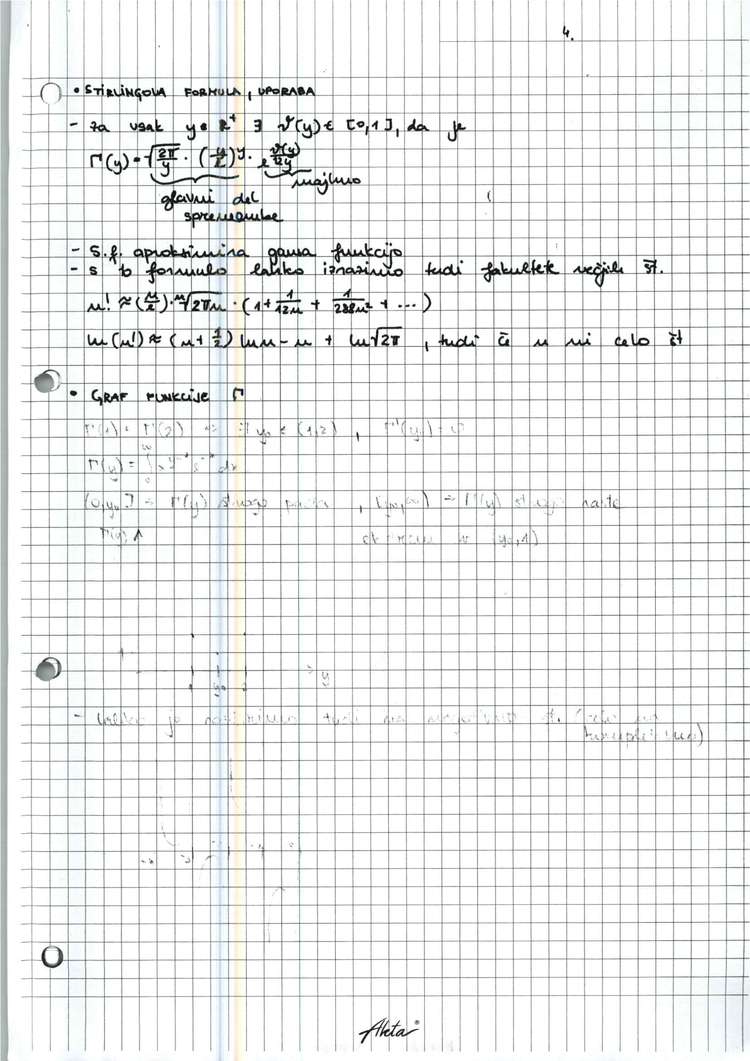 4.
• STIRLINGOVA FORMULA, UPORABA
- za vsak y ∈ R⁺ ∃ ϑ(y) ∈ [0,1], da je
Γ(y) = √(2π/y) · (y/e)^y · e^(ϑ(y)/12y)
majhno
glavni del
spremembe
- S.f. aproksimira gama funkcijo
- s to formulo lahko izrazimo tudi fakultete večjih št.
n! ≈ (n/e)^n · √2πn · (1 + 1/12n + 1/288n² + ...)
ln(n!) ≈ (n + 1/2) ln n - n + ln√2π , tudi če n ni celo št
• GRAF FUNKCIJE Γ
Γ(1) = Γ(2) => ∃ y₀ ∈ (1,2) , Γ'(y₀) = 0
Γ(y) = ∫₀^∞ x^(y-1) e^(-x) dx
(0,y₀] => Γ(y) strogo pada , [y₀,∞) => Γ(y) strogo raste
Γ(y) ↑
1
y
1 y₀ 2
- lahko je tudi št.
Akta